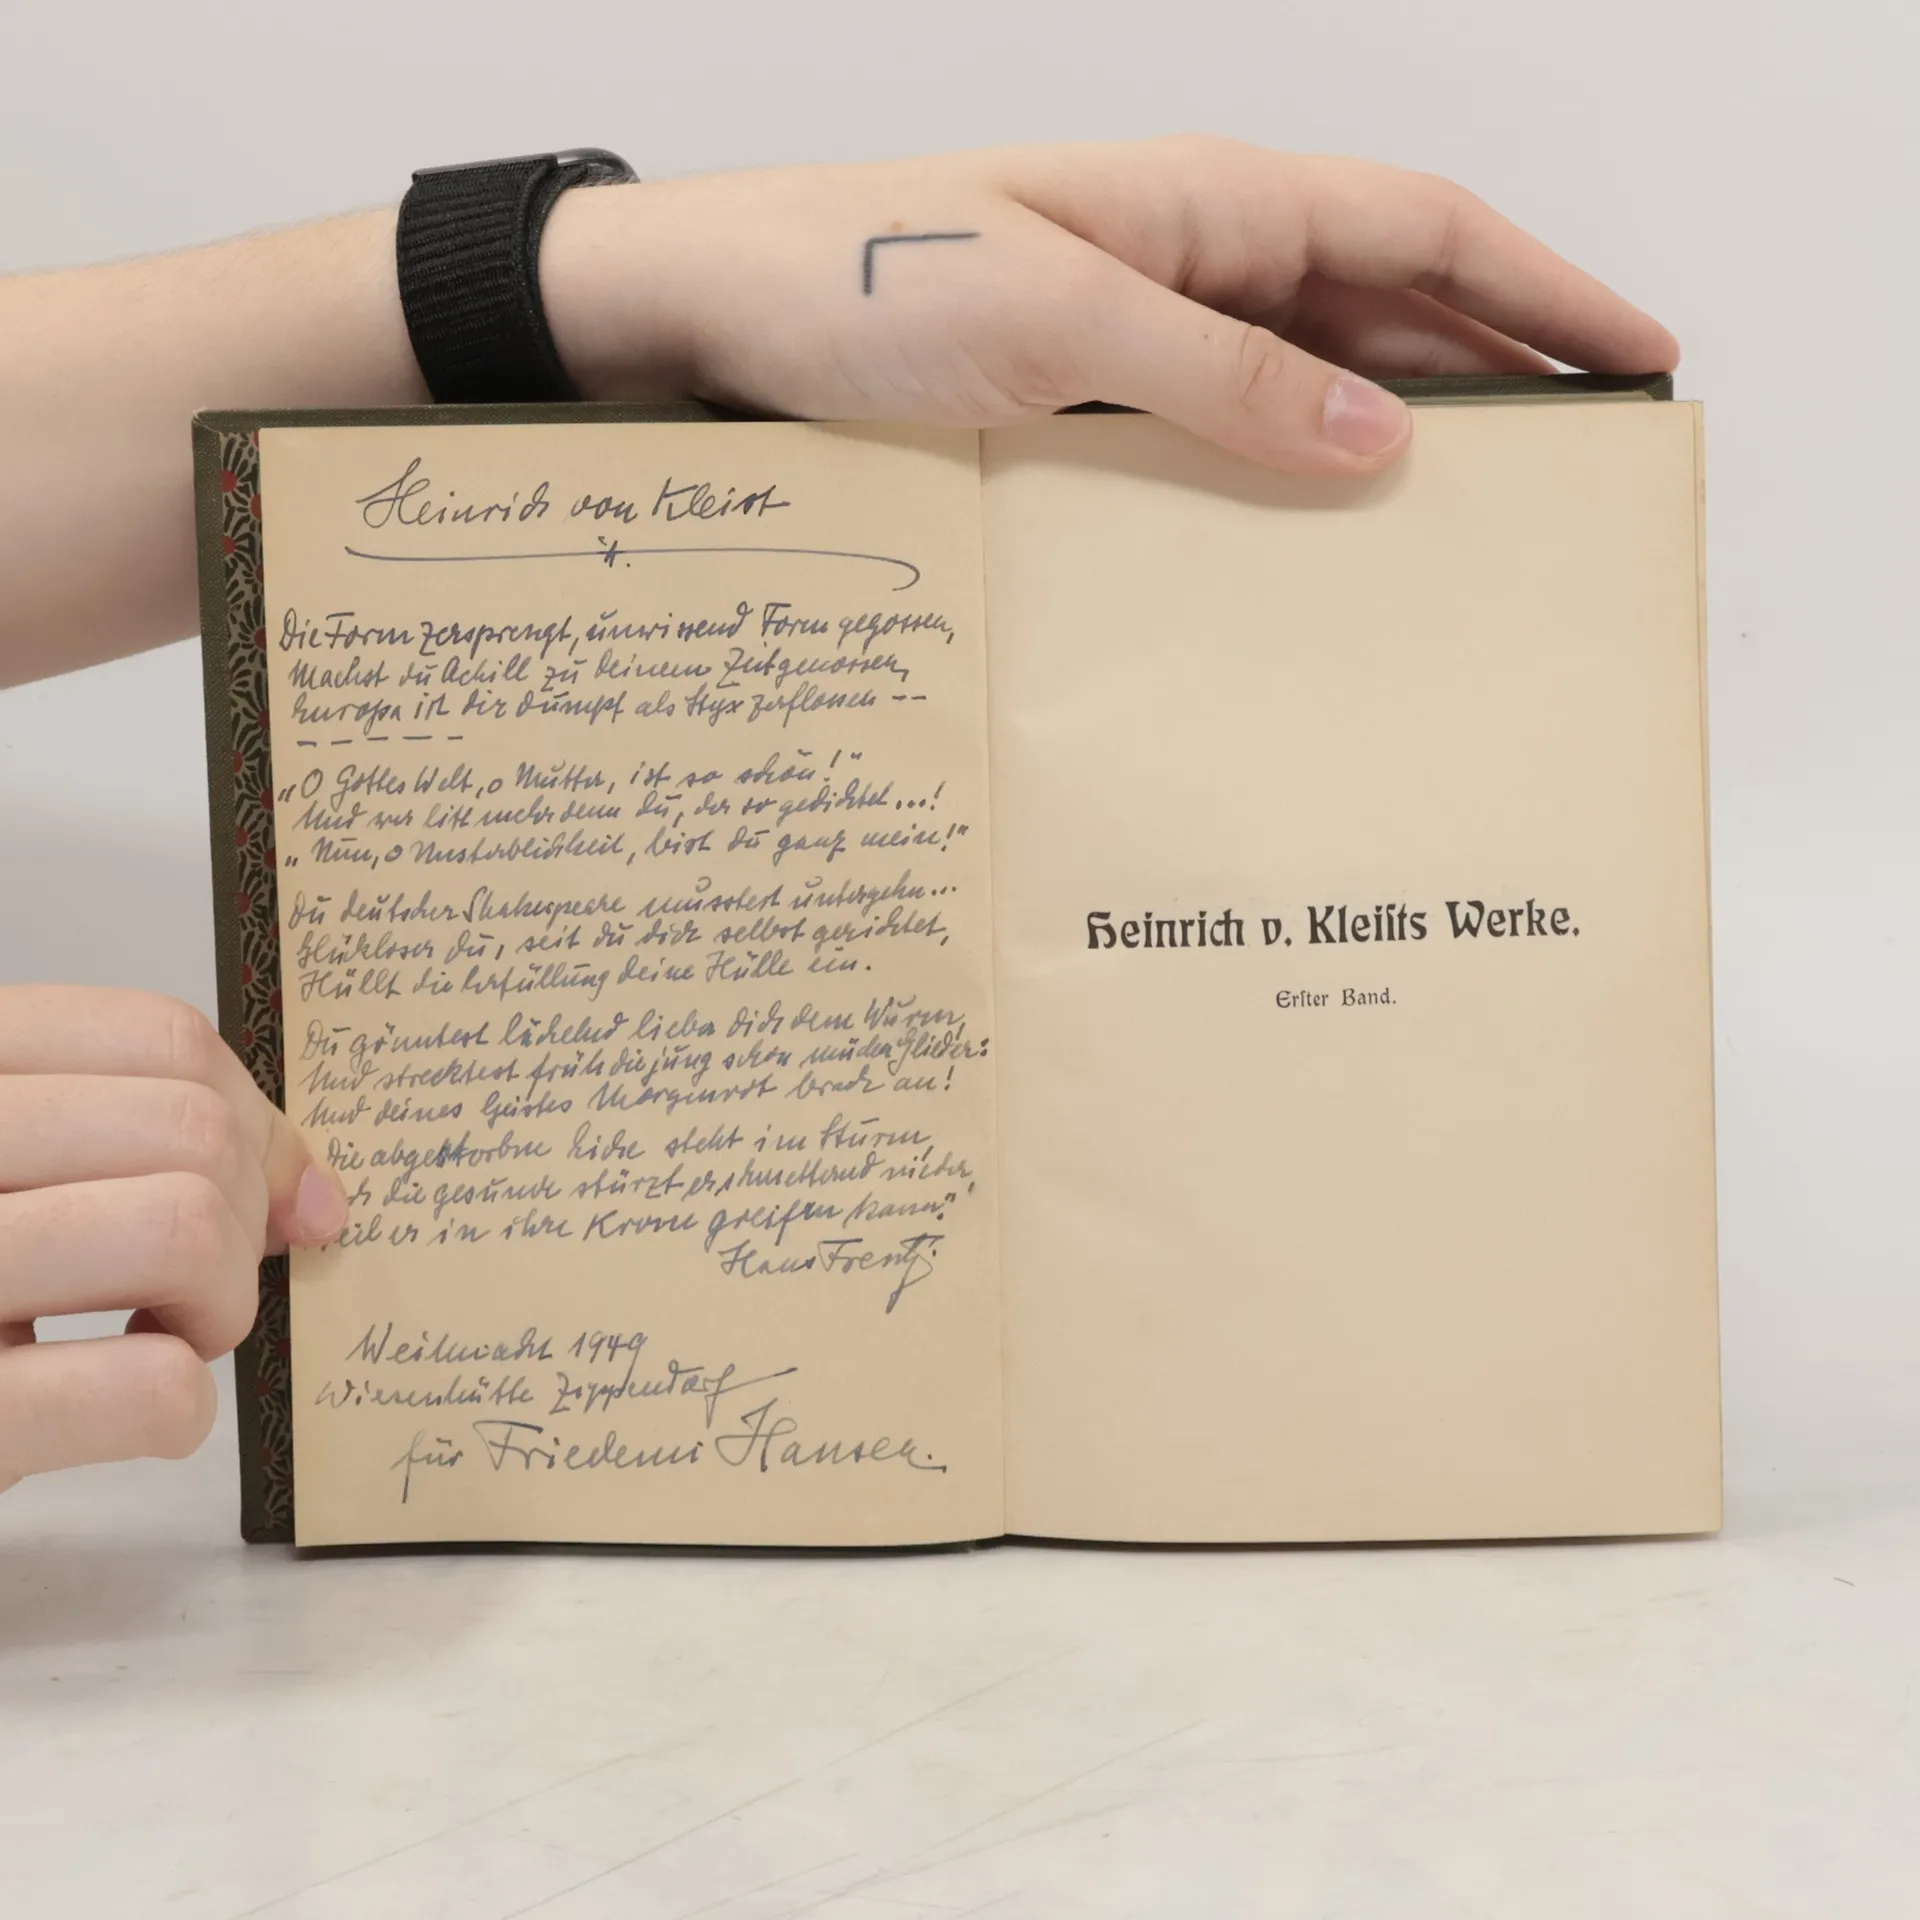 Heinrich von Kleist
Die Form zersprengt, unwissend Form gegossen,
Machst du Achill zu deinem Zeitgenossen,
Europa ist dir dumpf als Styx zerflossen --
- - - - -
„O Gottes Welt, o Mutter, ist so schön!“
Und wer litt mehr denn du, der so gedichtet...!
„Nun, o Unsterblichkeit, bist du ganz mein!“
Du deutscher Shakespeare musstest untergehn...
Glückloser du, seit du dich selbst gerichtet,
Hüllt die Erfüllung deine Hülle ein.
Du gönntest lächelnd lieber dich dem Wurm,
Und strecktest früh die jung schon müden Glieder:
Und deines Geistes Morgenrot brach an!
Die abgestorbne Eiche steht im Sturm,
die gesunde stürzt er schmetternd nieder,
er in ihre Krone greifen kann.“
Hans Frentz.
Weihnacht 1949
Wiesenhütte Zippendorf
für Friedemi Hansen.
Heinrich v. Kleiſts Werke.
Erſter Band.